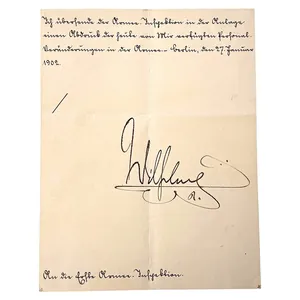 Ich übersende der Armee-Inspektion in der Anlage
einen Abdruck der heute von Mir verfügten Personal-
Veränderungen in der Armee.- Berlin, den 27 Januar
1902.
Wilhelm
R.
An die Erste Armee-Inspektion.